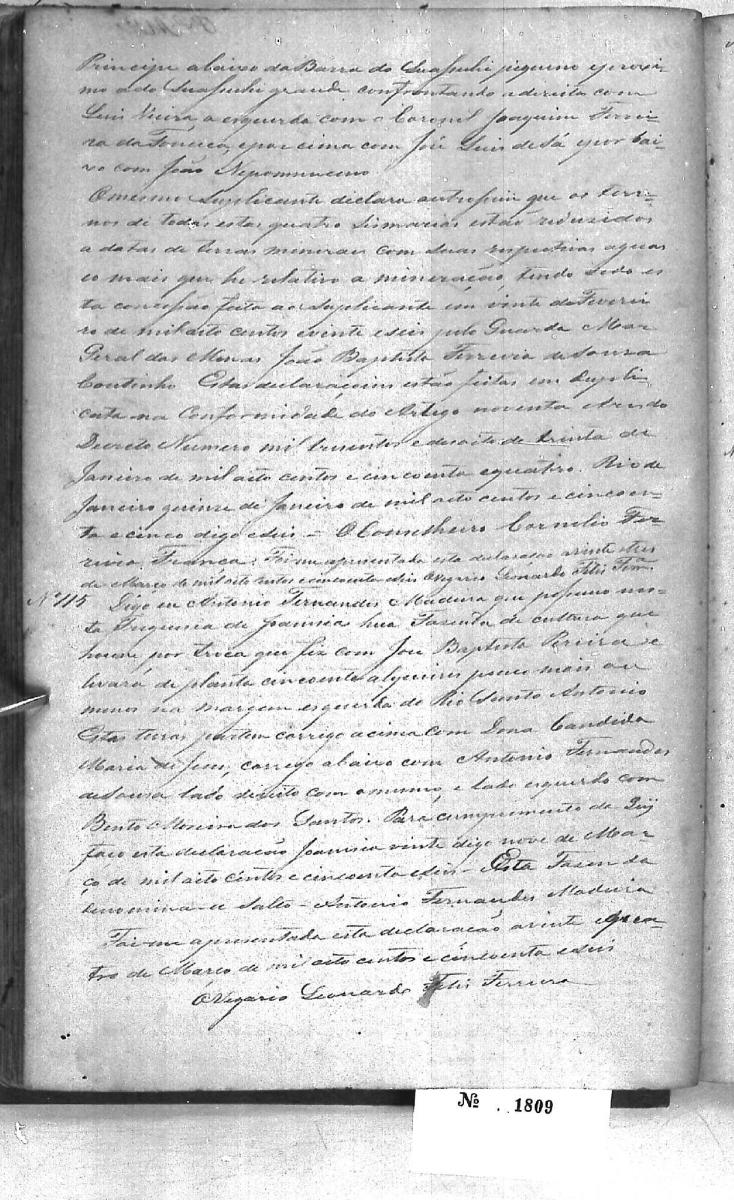 Principe abaixo da Barra do Suassuhi pequeno e proxi-
mo a do Suassuhi grande confrontando a direita com
Luis Vieira, a esquerda com o Coronel Joaquim Ferrei-
ra da Fonseca, e por cima com José Luis de Sá e por bai-
xo com João Nepomuceno
O mesmo Suplicante declara outrosim que os terre-
nos de todas estas quatro sismarias estão reduzidos
a datas de terras minerais com suas respectivas aguas
e o mais que he relativo a mineração, tendo sido es-
ta concessão feita ao Suplicante em vinte de Feverei
ro de mil oito centos e vinte e seis pelo Guarda Mor
Geral das Minas João Baptista Ferreira de Souza
Coutinho Estas declaraçoens estão feitas em dupli
cata na Conformidade do Artigo noventa e tres do
Decreto Numero mil trusentos e desoito de trinta de
Janeiro de mil oito centos e cincoenta e quatro. Rio de
Janeiro quinze de Janeiro de mil oito centos e cincoen-
ta e cinco digo e seis - O Conselheiro Cornelio Fer-
reira França. Foi me apresentada esta declaração a vinte e tres
de Março de mil oito centos e cincoenta e seis O Vigario Leonardo Felis Ferrª.
Nº 115 Digo eu Antonio Fernandes Madura que possuo nes-
ta Freguesia de Joanesia hua Fazenda de cultura que
houve por troca que fiz com José Baptista Pereira e
levará de planta cincoenta alqueires pouco mais ou
menos na margem esquerda do Rio Santo Antonio
Estas terras partem corrego acima com Dona Candida
Maria de Jesus, corrego abaixo com Antonio Fernandes
de Sousa lado direito com o mesmo, e lado esquerdo com
Bento Moreira dos Santos. Para cumprimento da Ley
faço esta declaração Joanesia vinte digo nove de Mar-
ço de mil oito centos e cincoenta e seis - Esta Fazenda
denomina-se Salto - Antonio Fernandes Madeira
Foi-me apresentada esta declaração a vinte e qua-
tro de Março de mil oito centos e cincoenta e seis
O Vigario Leonardo Felis Ferreira
Nº . 1809